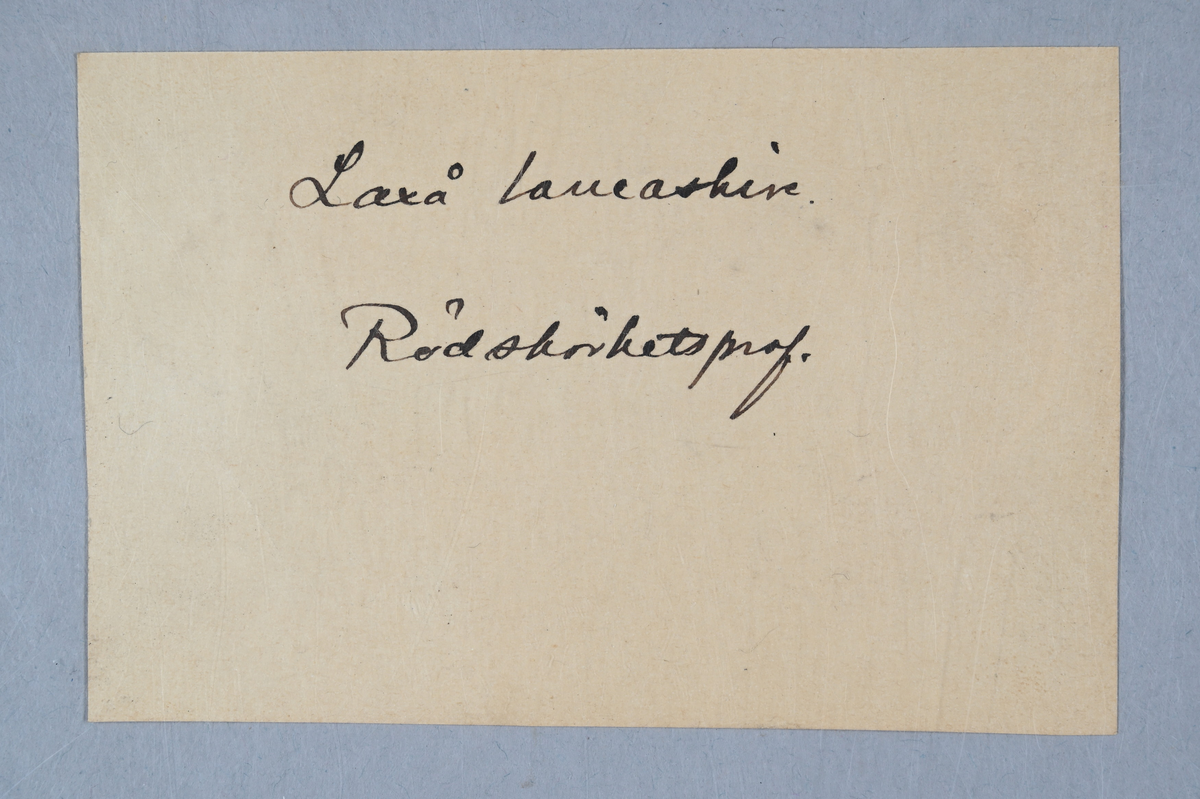 Laxå lancashire.
Rödskörhetsprof.